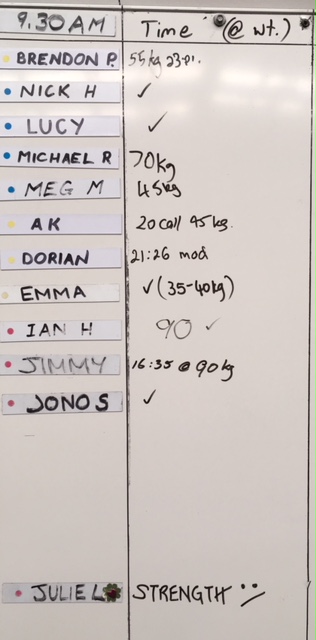 9.30AM Time (@ wt.)
BRENDON P. 55kg
NICK H ✓
LUCY ✓
MICHAEL R 70kg
MEG M 45kg
AK 20 call 45kg.
DORIAN 21:26 mod
EMMA ✓ (35-40kg)
IAN H 90 ✓
JIMMY 16:35 @ 90kg
JONO S ✓
JULIE L STRENGTH